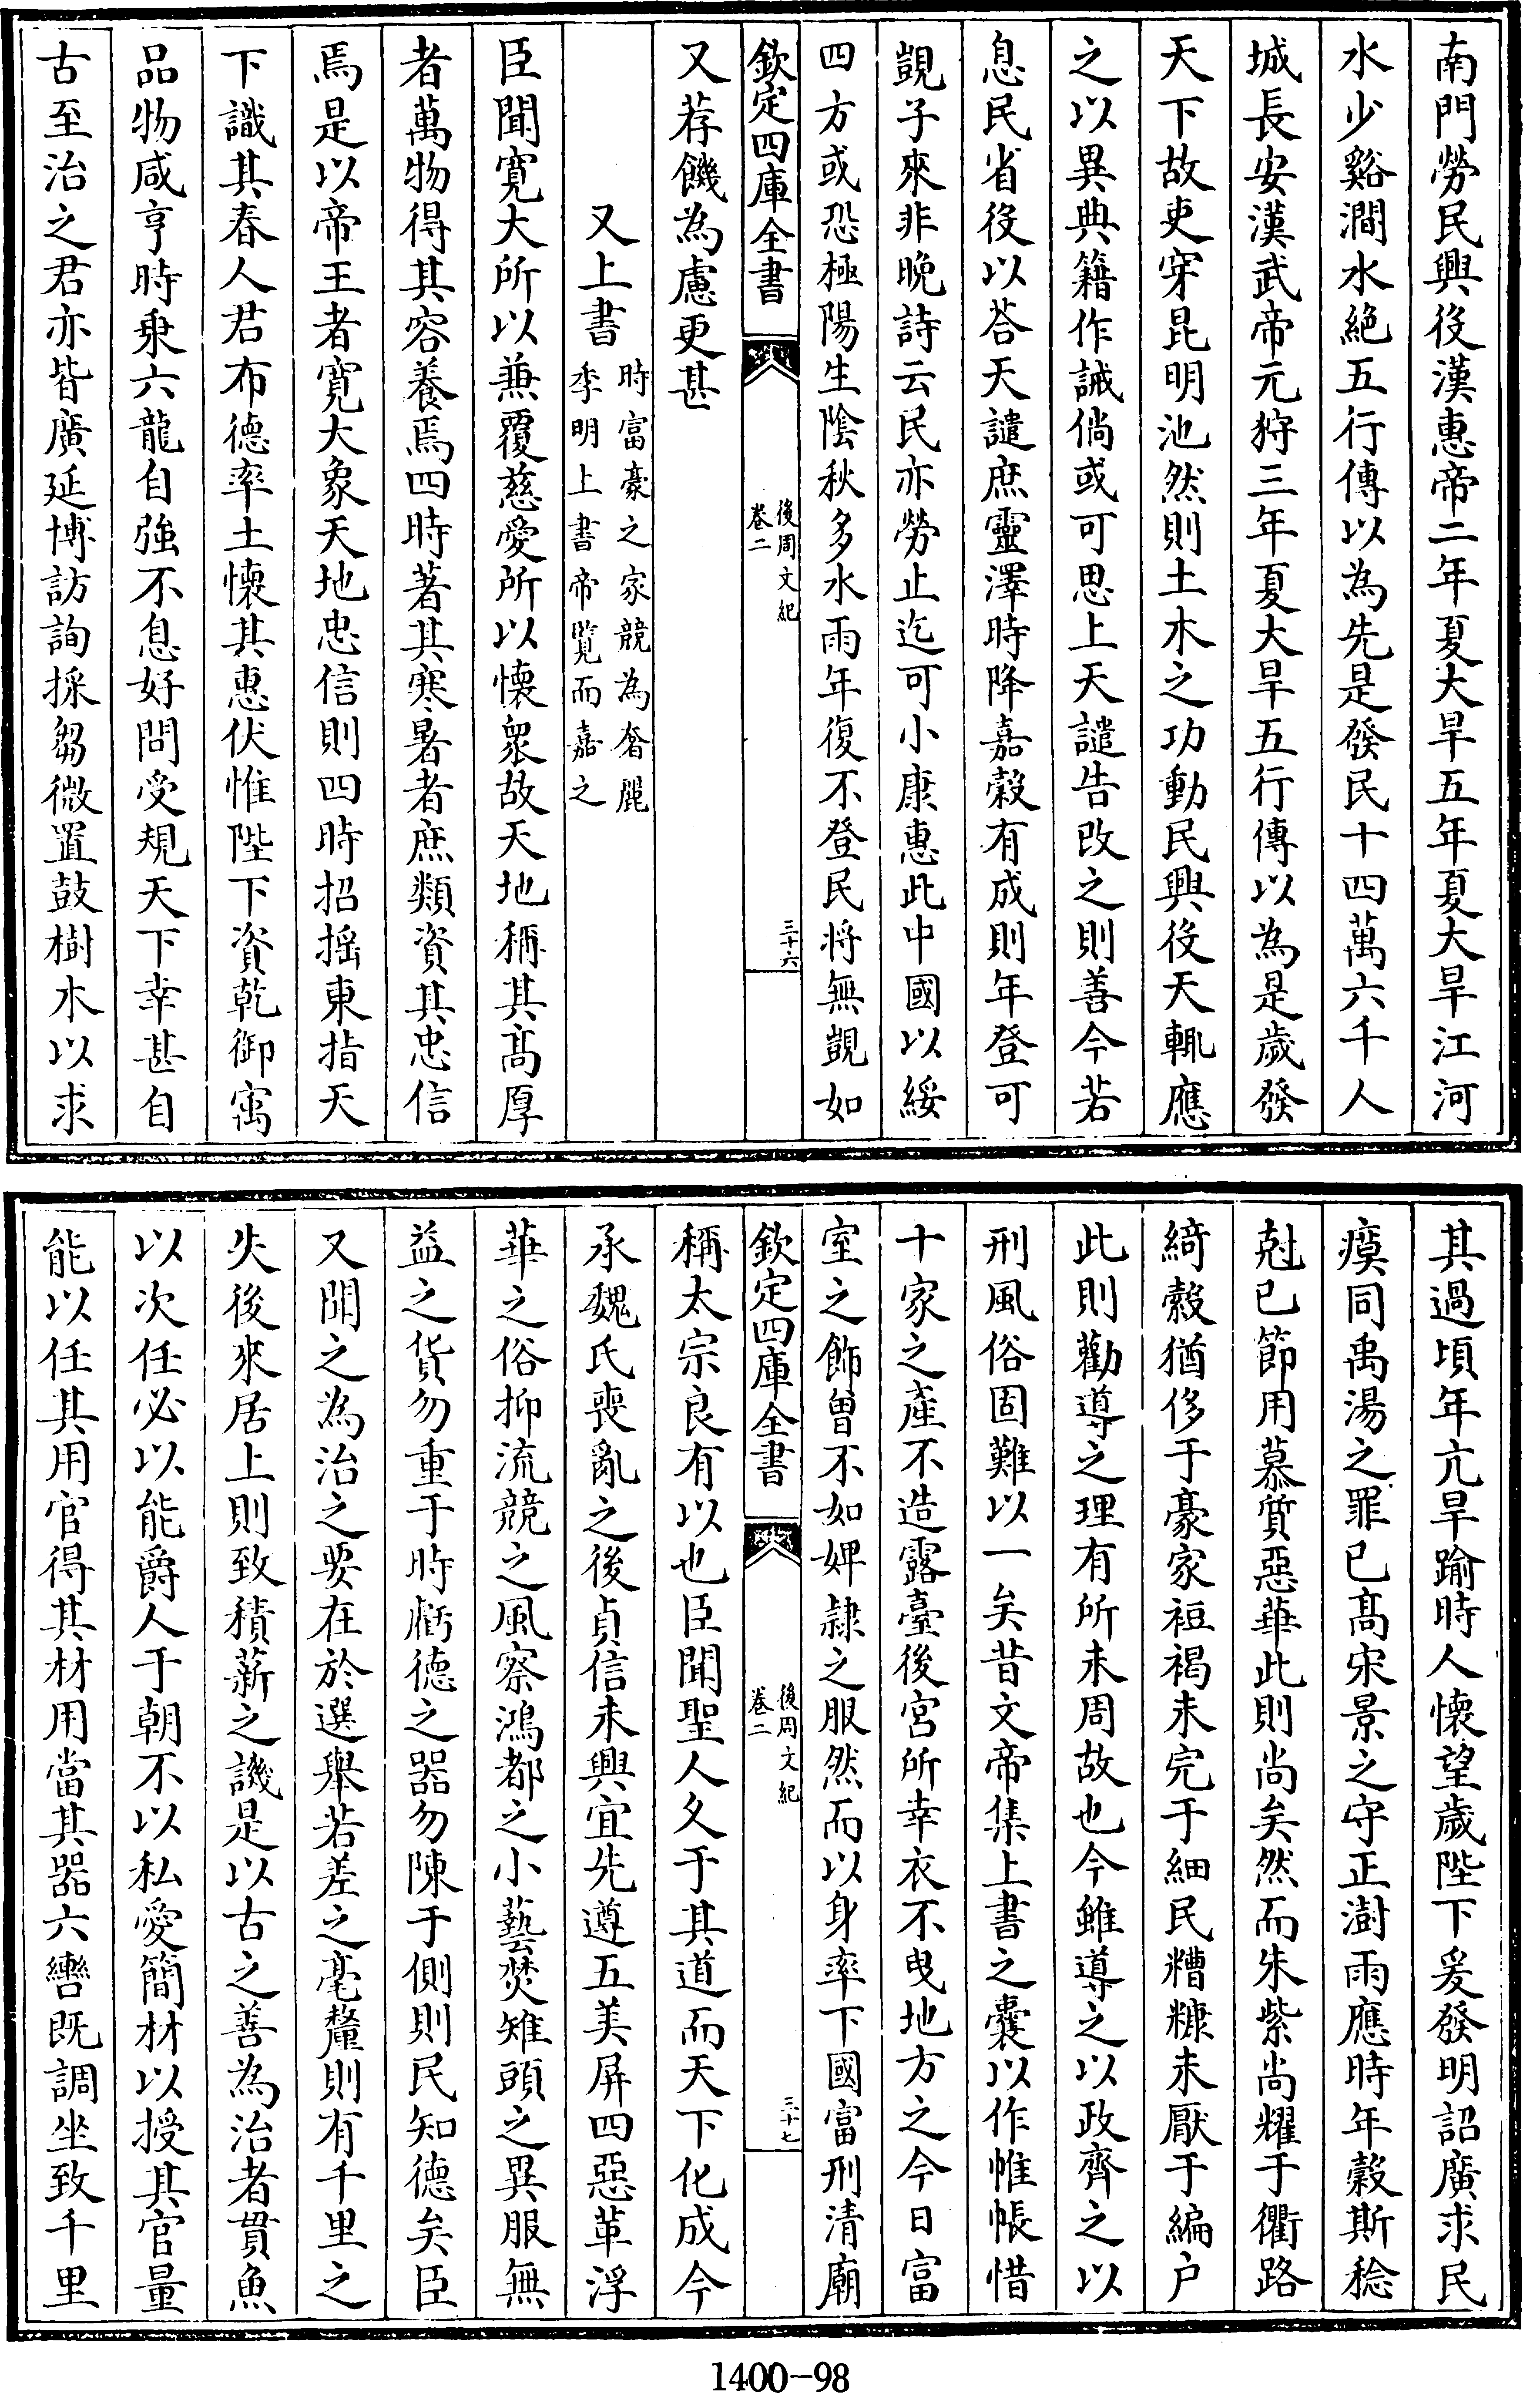 南門勞民興役漢惠帝二年夏大旱五年夏大旱江河
水少谿澗水絶五行傳以為先是發民十四萬六千人
城長安漢武帝元狩三年夏大旱五行傳以為是歲發
天下故吏穿昆明池然則土木之功動民興役天輒應
之以異典籍作誡倘或可思上天譴告改之則善今若
息民省役以荅天譴庶靈澤時降嘉穀有成則年登可
覬子來非晩詩云民亦勞止迄可小康惠此中國以綏
四方或恐極陽生陰秋多水雨年復不登民將無覬如
欽定四庫全書
後周文紀
卷二
三十六
又荐饑為慮更甚
又上書
時富豪之家競為奢麗
季明上書帝覽而嘉之
臣聞寛大所以兼覆慈愛所以懷衆故天地稱其高厚
者萬物得其容養焉四時著其寒暑者庶類資其忠信
焉是以帝王者寛大象天地忠信則四時招摇東指天
下識其春人君布德率土懷其惠伏惟陛下資乾御㝢
品物咸亨時乗六龍自強不息好問受規天下幸甚自
古至治之君亦皆廣延博訪詢採芻微置鼓樹木以求
其過頃年亢旱踰時人懷望歲陛下爰發明詔廣求民
瘼同禹湯之罪已高宋景之守正澍雨應時年穀斯稔
尅已節用慕質惡華此則尚矣然而朱紫尚耀于衢路
綺縠猶侈于豪家裋褐未完于細民糟糠未厭于編户
此則勸導之理有所未周故也今雖導之以政齊之以
刑風俗固難以一矣昔文帝集上書之囊以作帷帳惜
十家之產不造露臺後宮所幸衣不曳地方之今日富
室之飾曽不如婢隷之服然而以身率下國富刑清廟
欽定四庫全書
後周文紀
卷二
三十七
稱太宗良有以也臣聞聖人久于其道而天下化成今
承魏氏喪亂之後貞信未興宜先遵五美屏四惡革浮
華之俗抑流競之風察鴻都之小藝焚雉頭之異服無
益之貨勿重于時虧德之器勿陳于側則民知德矣臣
又聞之為治之要在於選舉若差之毫釐則有千里之
失後來居上則致積薪之譏是以古之善為治者貫魚
以次任必以能爵人于朝不以私愛簡材以授其官量
能以任其用官得其材用當其器六轡既調坐致千里
1400-98